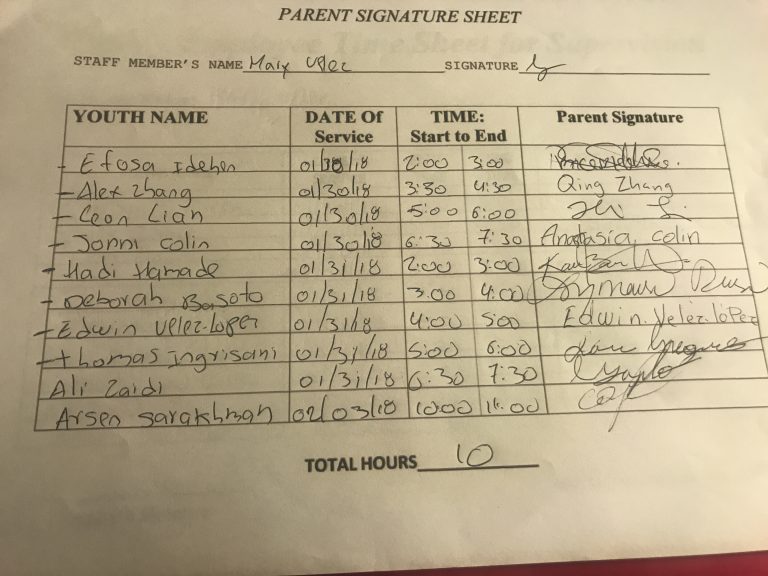 PARENT SIGNATURE SHEET
STAFF MEMBER'S NAME Mary Velez SIGNATURE
YOUTH NAME DATE Of Service TIME: Start to End Parent Signature
Efosa Idehen 01/30/18 2:00 3:00
Alex Zhang 01/30/18 3:30 4:30 Qing Zhang
Leon Lian 01/30/18 5:00 6:00
Jonni Colin 01/30/18 6:30 7:30 Anastasia Colin
Hadi Hamade 01/31/18 2:00 3:00
Deborah Basoto 01/31/18 3:00 4:00
Edwin Velez-Loper 01/31/18 4:00 5:00 Edwin Velez-López
Thomas Ingrisani 01/31/18 5:00 6:00
Ali Zaidi 01/31/18 6:30 7:30
Arsen Sarakhman 02/03/18 10:00 11:00
TOTAL HOURS 10